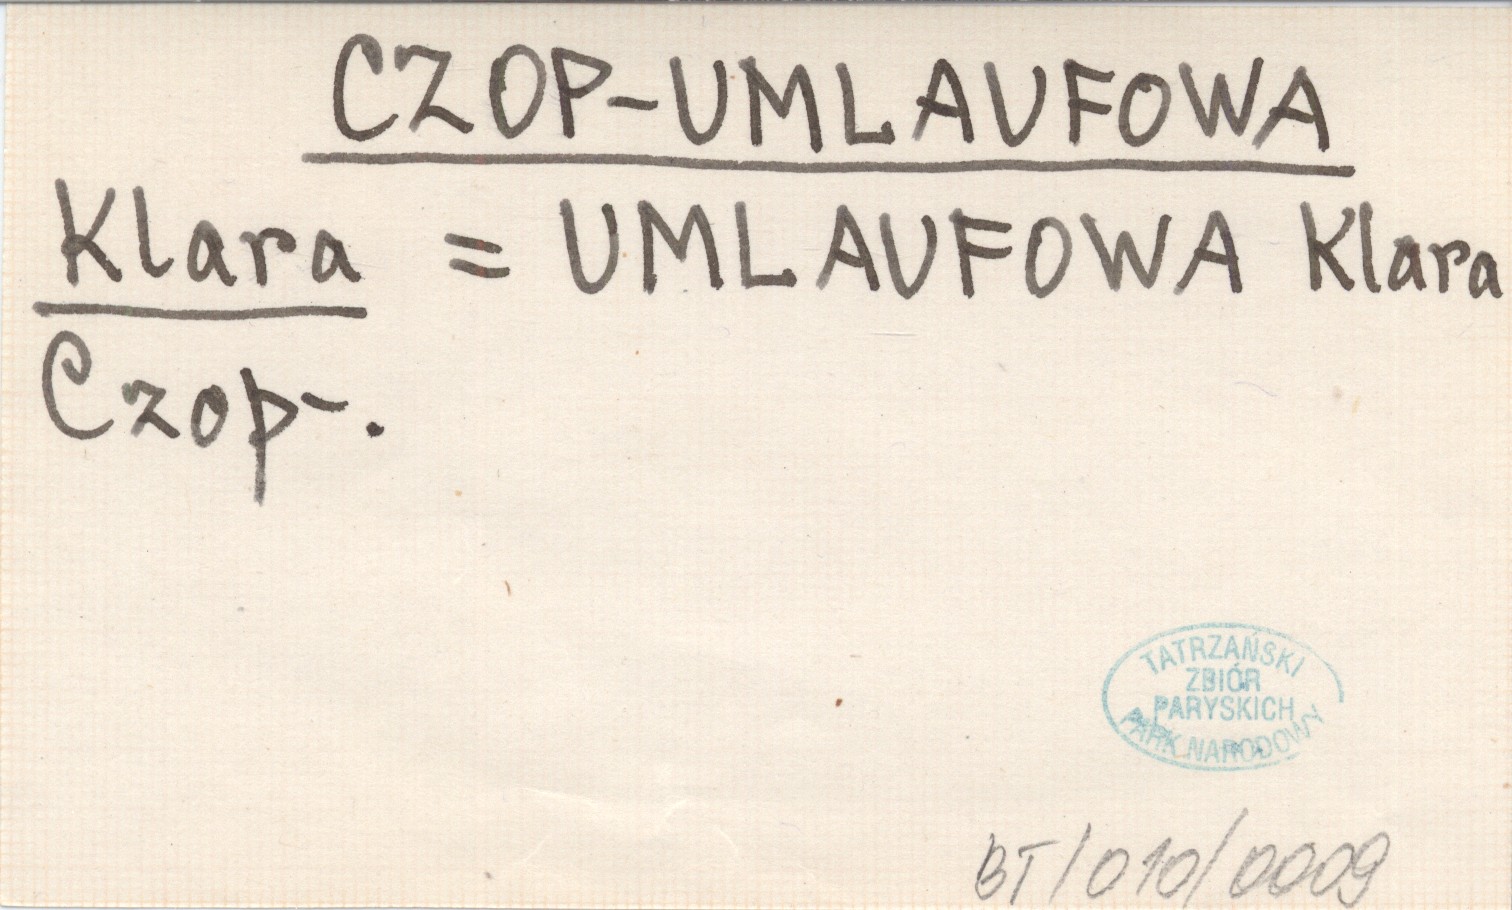 CZOP-UMLAUFOWA
Klara = UMLAUFOWA Klara
Czop-.
TATRZAŃSKI
ZBIÓR
PARYSKICH
PARK NARODOWY
BT/010/0009